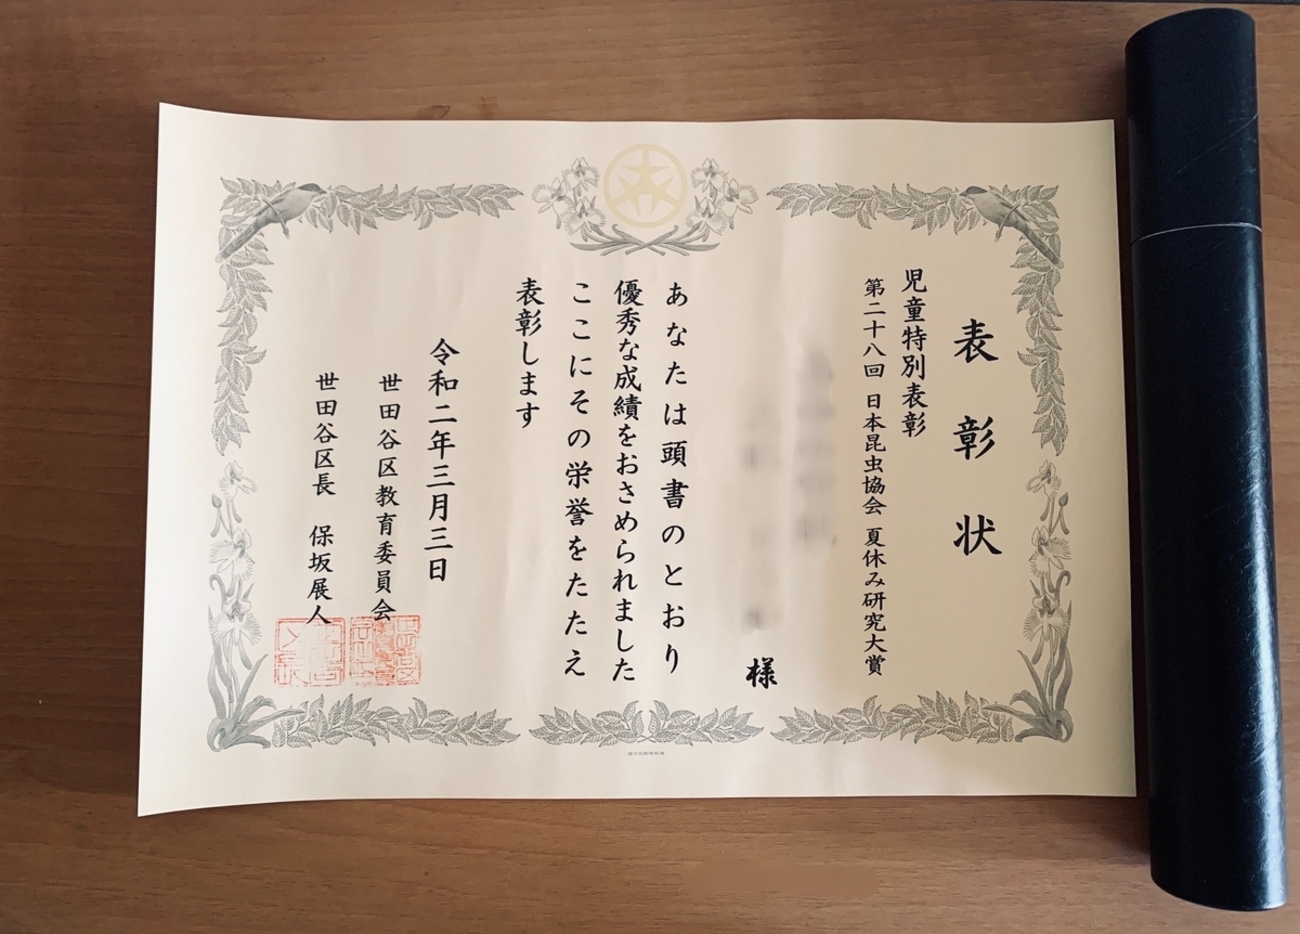 表彰状
児童特別表彰
第二十八回 日本昆虫協会 夏休み研究大賞
様
あなたは頭書のとおり
優秀な成績をおさめられました
ここにその栄誉をたたえ
表彰します
令和二年三月三日
世田谷区教育委員会
世田谷区長 保坂展人